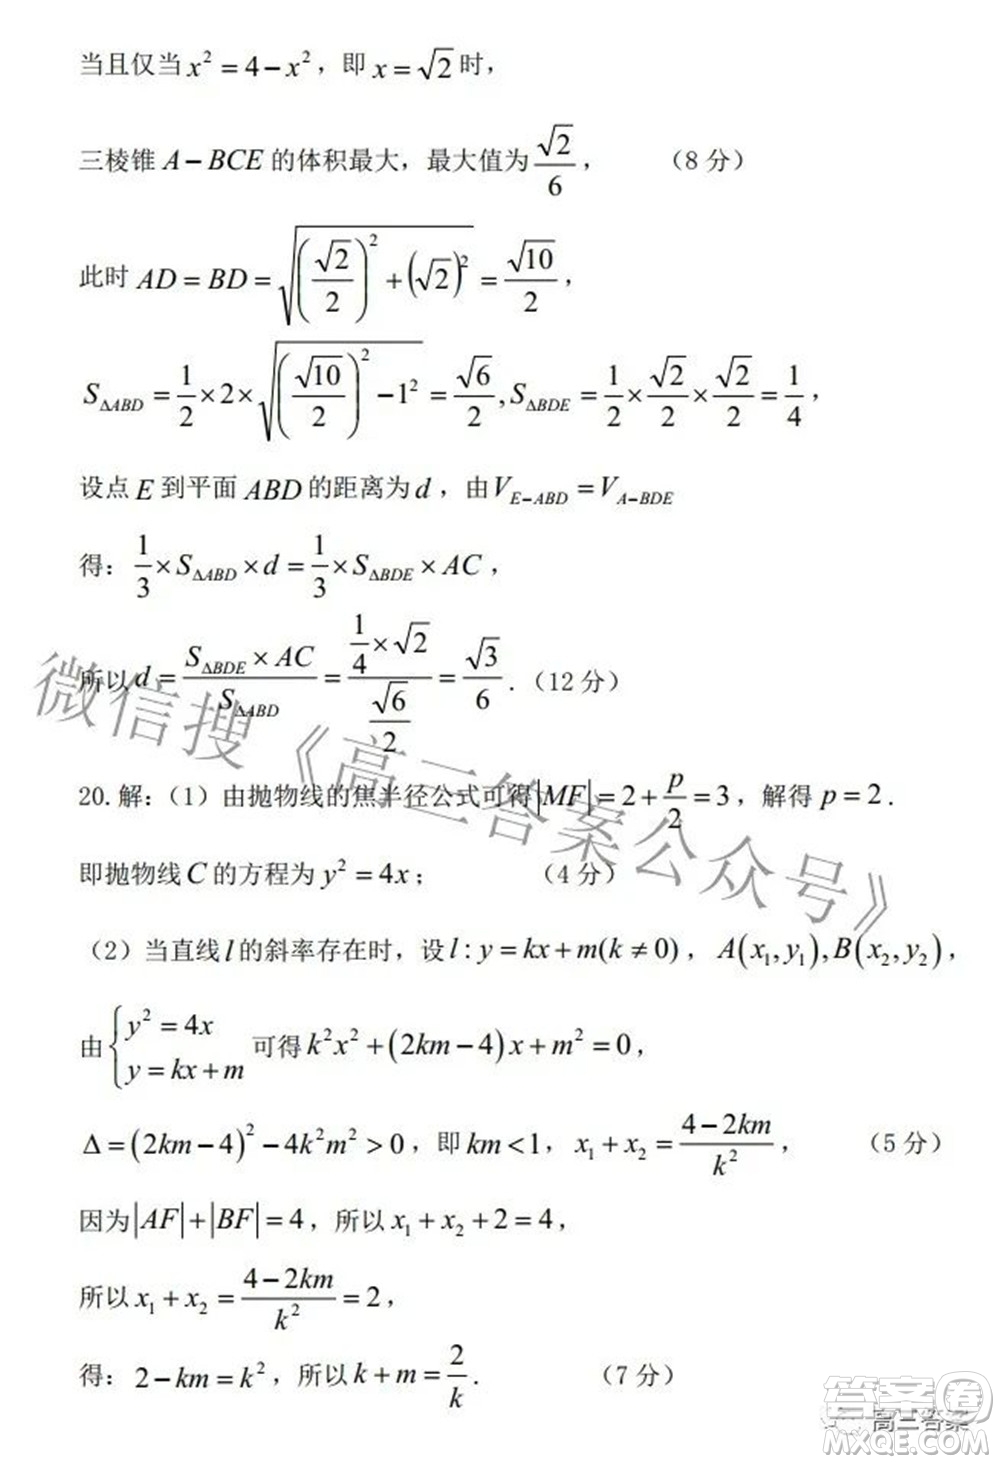 当且仅当 x² = 4 − x²，即 x = √2 时，
三棱锥 A − BCE 的体积最大，最大值为 √2/6，　（8 分）
此时 AD = BD = √((√2/2)² + (√2)²) = √10/2，
S_{ΔABD} = 1/2 × 2 × √((√10/2)² − 1²) = √6/2, S_{ΔBDE} = 1/2 × √2/2 × √2/2 = 1/4，
设点 E 到平面 ABD 的距离为 d ，由 V_{E−ABD} = V_{A−BDE}
得：1/3 × S_{ΔABD} × d = 1/3 × S_{ΔBDE} × AC，
所以 d = (S_{ΔBDE} × AC)/S_{ΔABD} = (1/4 × √2)/(√6/2) = √3/6 .（12 分）
20. 解：（1）由抛物线的焦半径公式可得 |MF| = 2 + p/2 = 3，解得 p = 2．
即抛物线 C 的方程为 y² = 4x；　（4 分）
（2）当直线 l 的斜率存在时，设 l : y = kx + m(k ≠ 0)，A(x₁, y₁), B(x₂, y₂)，
由 { y² = 4x
y = kx + m 可得 k²x² + (2km − 4)x + m² = 0，
Δ = (2km − 4)² − 4k²m² > 0，即 km < 1，x₁ + x₂ = (4 − 2km)/k²，　（5 分）
因为 |AF| + |BF| = 4，所以 x₁ + x₂ + 2 = 4，
所以 x₁ + x₂ = (4 − 2km)/k² = 2，
得：2 − km = k²，所以 k + m = 2/k．　（7 分）
微信搜《高三答案公众号》
答案圈
高三答案
MXQE.COM